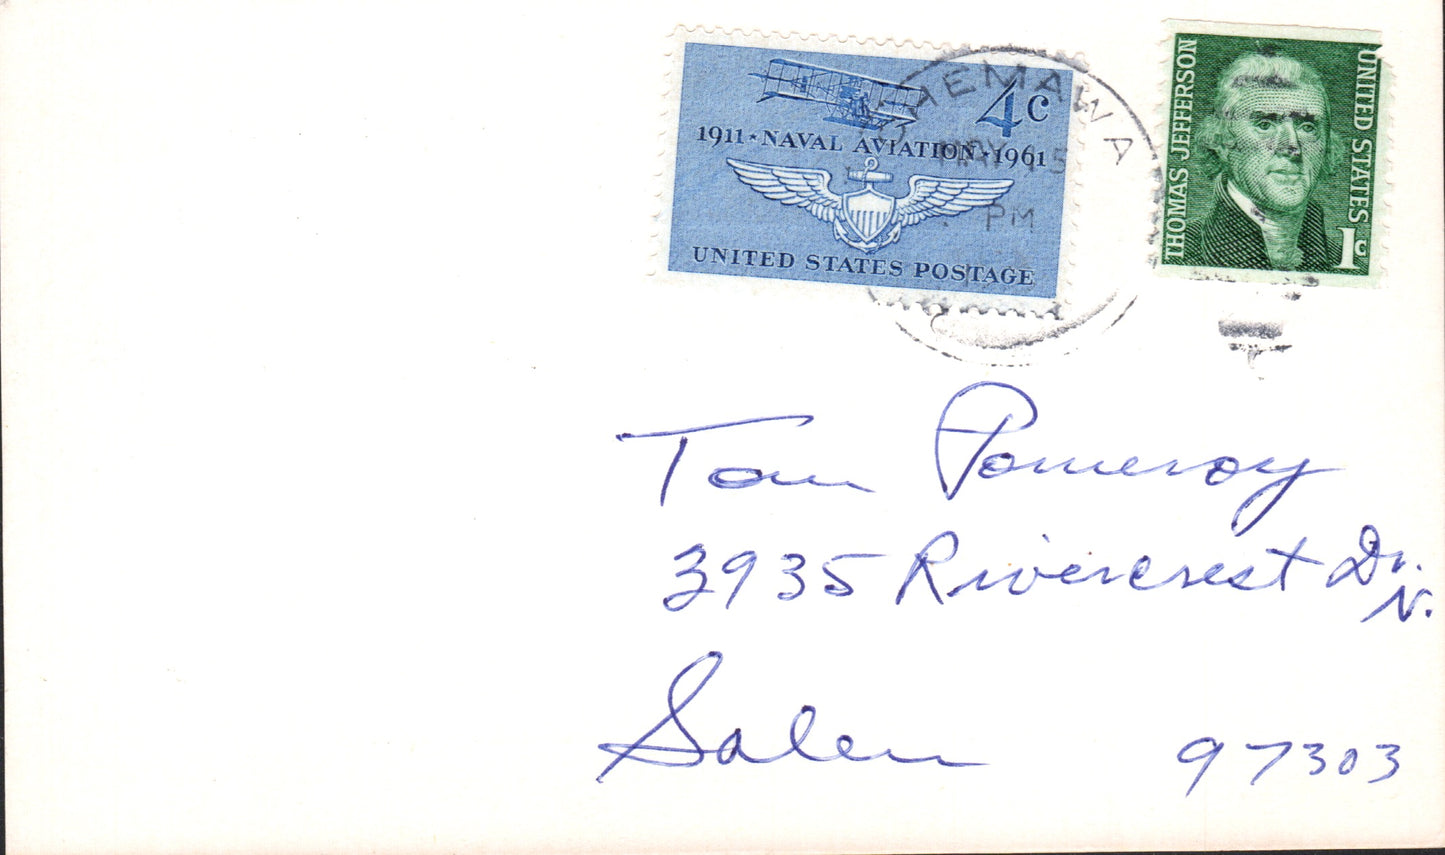 4c
1911★NAVAL AVIATION★1961
UNITED STATES POSTAGE
CHEMAWA
MAY 15
PM
THOMAS JEFFERSON
UNITED STATES
1c
Tom Pomeroy
3935 Rivercrest Dr.
N.
Salem 97303